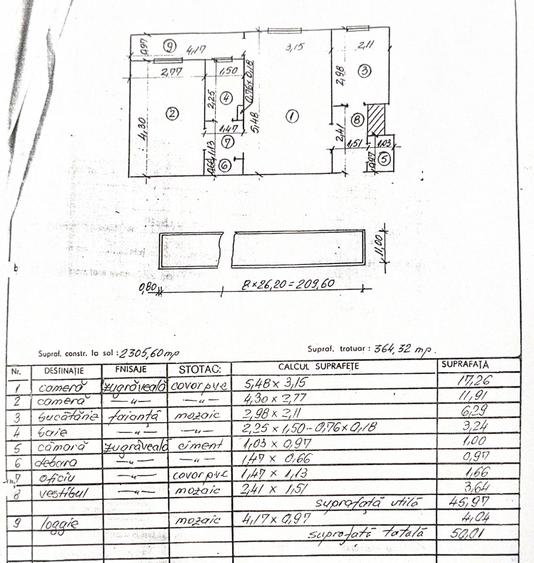 0,97 9 4,17 3,15 2,11
2,77 1,50 2,98 3
2,25 4 0,76x0,18
2 1 8
4,30 1,47 5,48 2,41
7 1,51 1,03
1,13 0,97 5
0,66 6
11,00
0,80 8 × 26,20 = 209,60
Supraf. constr. la sol : 2305,60 mp Supraf. trotuar : 364,32 mp.
Nr. DESTINAȚIE FNISAJE STOTAC: CALCUL SUPRAFEȚE SUPRAFAȚĂ
1 cameră zugrăveală covor pvc 5,48 x 3,15 17,26
2 cameră —„— —„— 4,30 x 2,77 11,91
3 bucătărie faianță mozaic 2,98 x 2,11 6,29
4 baie —„— —„— 2,25 x 1,50 - 0,76 x 0,18 3,24
5 cămară zugrăveală ciment 1,03 x 0,97 1,00
6 debara —„— —„— 1,47 x 0,66 0,97
7 oficiu —„— covor pvc 1,47 x 1,13 1,66
8 vestibul —„— mozaic 2,41 x 1,51 3,64
suprafață utilă 45,97
9 loggie mozaic 4,17 x 0,97 4,04
suprafață totală 50,01